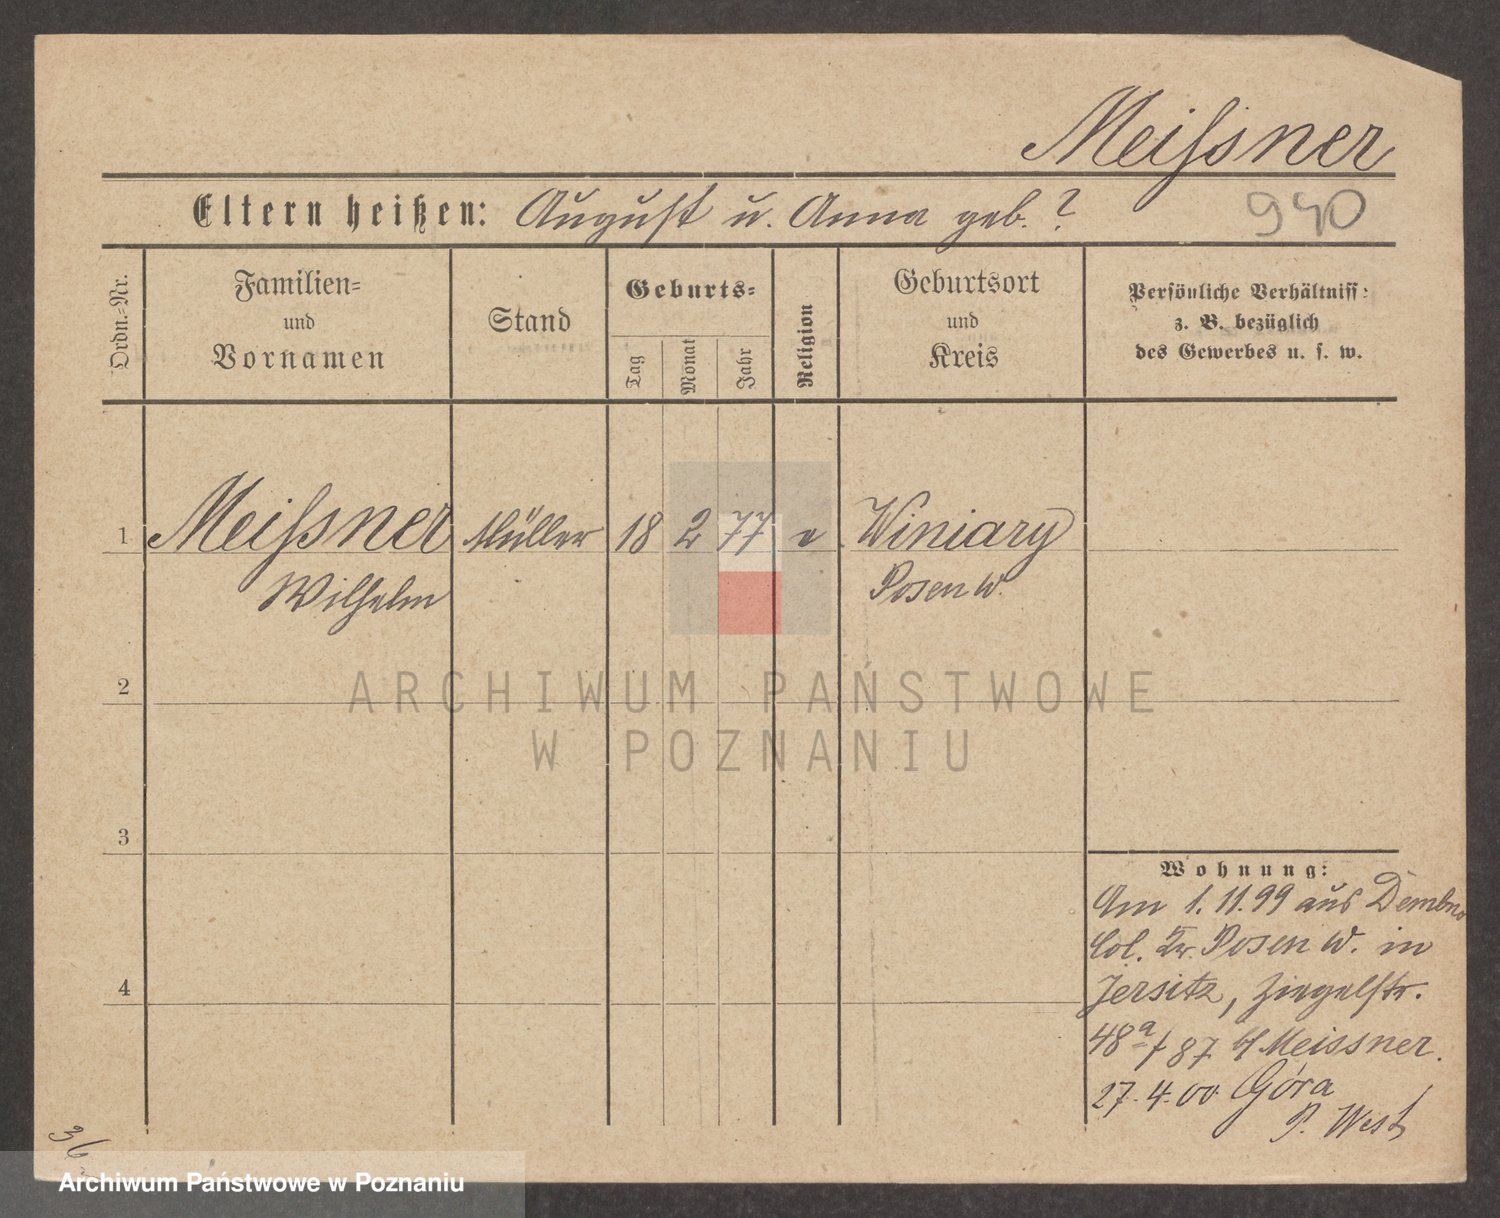 Meißner
Eltern heißen: August u. Anna geb. ?
940
Ordn.=Nr.
Familien=
und
Vornamen
Stand
Geburts=
Tag
Monat
Jahr
Religion
Geburtsort
und
Kreis
Persönliche Verhältniss:
z. B. bezüglich
des Gewerbes u. s. w.
1 Meißner Müller 18 2 77 e Winiary
Wilhelm Posen W.
2
ARCHIWUM PAŃSTWOWE
W POZNANIU
3
Wohnung:
Am 1. 11. 99 aus Dembno
Col. Kr. Posen W. in
4
Jersitz, Ziegelstr.
48a/87 b/Meissner.
27. 4. 00 Góra
P. West
36
Archiwum Państwowe w Poznaniu